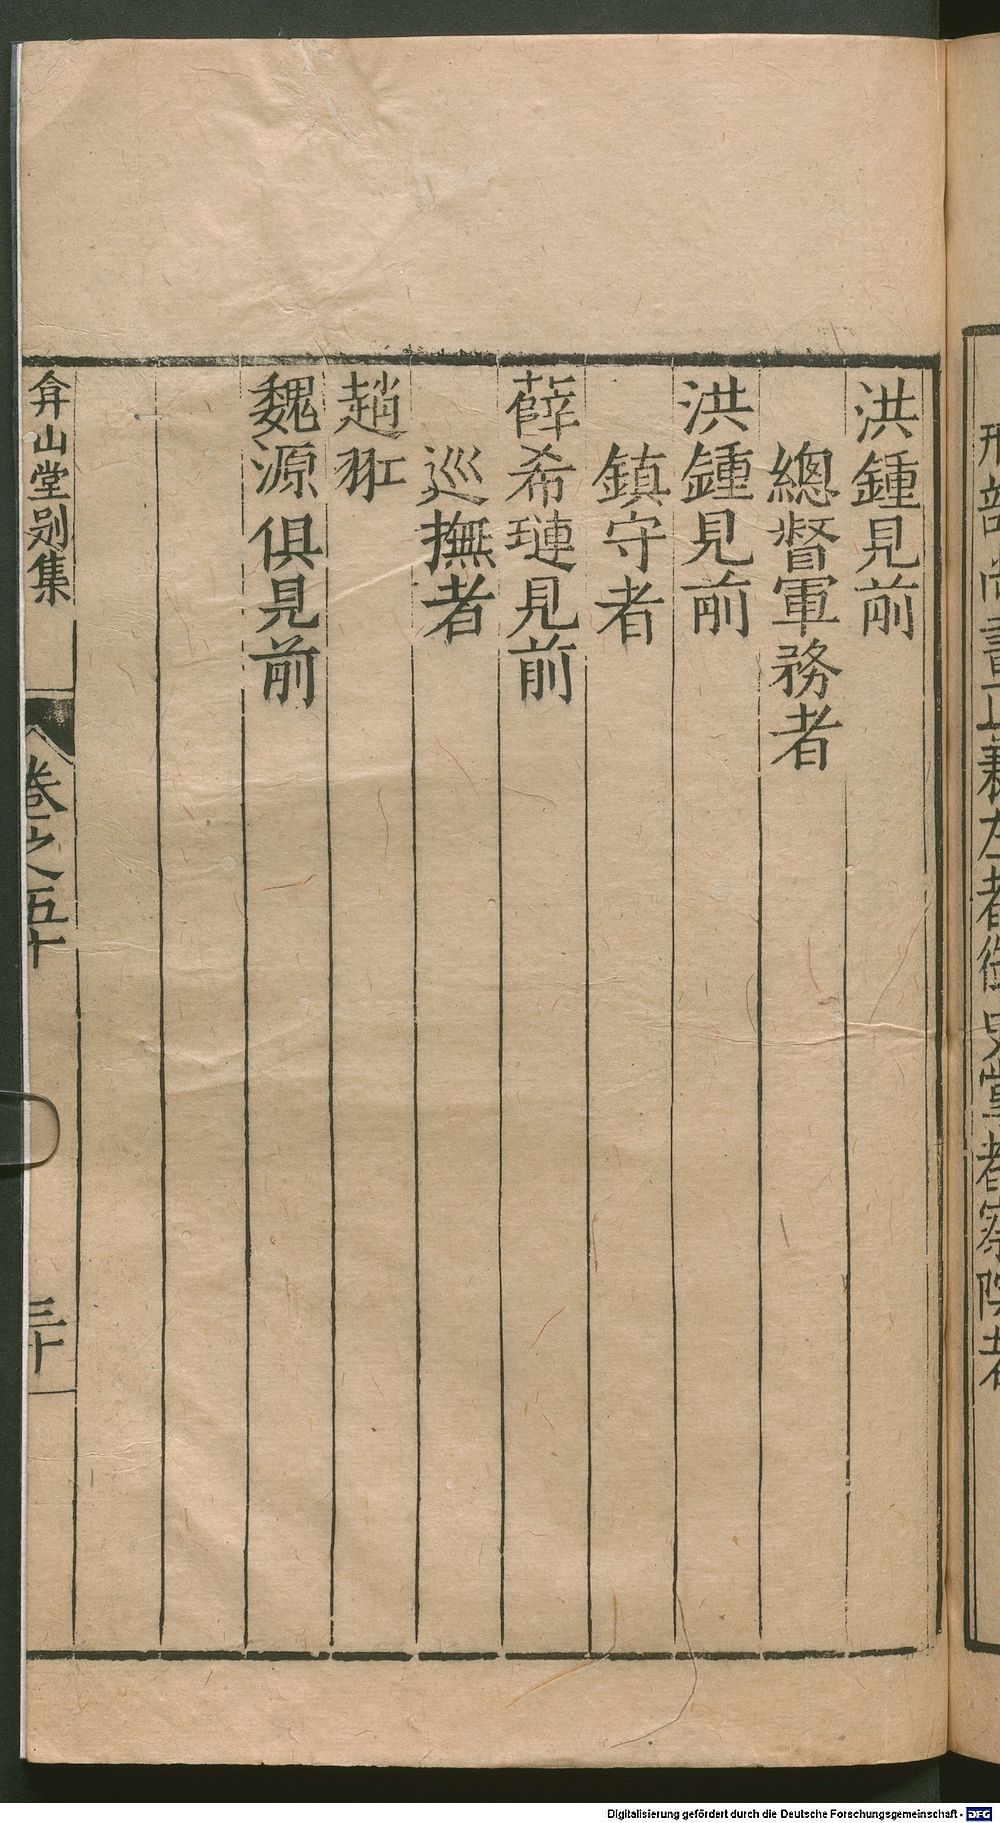 刑部尚書正兼左者御史堂都察院者
洪鍾見前
總督軍務者
洪鍾見前
鎮守者
薛希璉見前
巡撫者
趙羾
魏源俱見前
弇山堂別集
卷之五十
三十
Digitalisierung gefördert durch die Deutsche Forschungsgemeinschaft - DFG